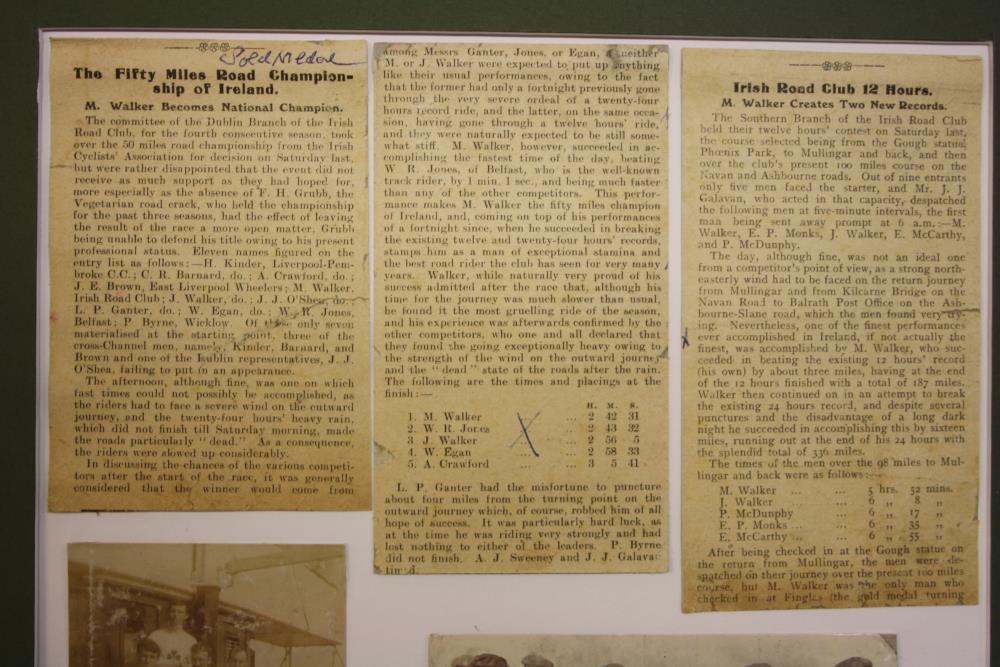 Gold Medal
The Fifty Miles Road Champion-
ship of Ireland.
M. Walker Becomes National Champion.
The committee of the Dublin Branch of the Irish
Road Club, for the fourth consecutive season, took
over the 50 miles road championship from the Irish
Cyclists' Association for decision on Saturday last,
but were rather disappointed that the event did not
receive as much support as they had hoped for,
more especially as the absence of F. H. Grubb, the
Vegetarian road crack, who held the championship
for the past three seasons, had the effect of leaving
the result of the race a more open matter, Grubb
being unable to defend his title owing to his present
professional status. Eleven names figured on the
entry list as follows:—H. Kinder, Liverpool-Pem-
broke C.C.; C. R. Barnard, do.; A. Crawford, do.;
J. E. Brown, East Liverpool Wheelers; M. Walker,
Irish Road Club; J. Walker, do.; J. J. O'Shea, do.;
L. P. Ganter, do.; W. Egan, do.; W. R. Jones,
Belfast; P. Byrne, Wicklow. Of these only seven
materialised at the starting point, three of the
cross-Channel men, namely, Kinder, Barnard, and
Brown and one of the Dublin representatives, J. J.
O'Shea, failing to put in an appearance.
The afternoon, although fine, was one on which
fast times could not possibly be accomplished, as
the riders had to face a severe wind on the outward
journey, and the twenty-four hours' heavy rain,
which did not finish till Saturday morning, made
the roads particularly "dead." As a consequence,
the riders were slowed up considerably.
In discussing the chances of the various competi-
tors after the start of the race, it was generally
considered that the winner would come from
among Messrs Ganter, Jones, or Egan, as neither
M. or J. Walker were expected to put up anything
like their usual performances, owing to the fact
that the former had only a fortnight previously gone
through the very severe ordeal of a twenty-four
hours record ride, and the latter, on the same occa-
sion, having gone through a twelve hours' ride,
and they were naturally expected to be still some-
what stiff. M. Walker, however, succeeded in ac-
complishing the fastest time of the day, beating
W. R. Jones, of Belfast, who is the well-known
track rider, by 1 min. 1 sec., and being much faster
than any of the other competitors. This perfor-
mance makes M. Walker the fifty miles champion
of Ireland, and, coming on top of his performances
of a fortnight since, when he succeeded in breaking
the existing twelve and twenty-four hours' records,
stamps him as a man of exceptional stamina and
the best road rider the club has seen for very many
years. Walker, while naturally very proud of his
success admitted after the race that, although his
time for the journey was much slower than usual,
he found it the most gruelling ride of the season,
and his experience was afterwards confirmed by the
other competitors, who one and all declared that
they found the going exceptionally heavy owing to
the strength of the wind on the outward journey
and the "dead" state of the roads after the rain.
The following are the times and placings at the
finish:—
H. M. S.
1. M. Walker ... 2 42 31
2. W. R. Jones ... 2 43 32
3 J. Walker ... 2 56 5
4. W. Egan ... ... 2 58 33
5. A. Crawford ... ... 3 5 41
L. P. Ganter had the misfortune to puncture
about four miles from the turning point on the
outward journey which, of course, robbed him of all
hope of success. It was particularly hard luck, as
at the time he was riding very strongly and had
lost nothing to either of the leaders. P. Byrne
did not finish. A. J. Sweeney and J. J. Galava
timed.
Irish Road Club 12 Hours.
M. Walker Creates Two New Records.
The Southern Branch of the Irish Road Club
held their twelve hours' contest on Saturday last,
the course selected being from the Gough statue,
Phœnix Park, to Mullingar and back, and then
over the club's present 100 miles course on the
Navan and Ashbourne roads. Out of nine entrants
only five men faced the starter, and Mr. J. J.
Galavan, who acted in that capacity, despatched
the following men at five-minute intervals, the first
man being sent away prompt at 6 a.m.:—M.
Walker, E. P. Monks, J. Walker, E. McCarthy,
and P. McDunphy.
The day, although fine, was not an ideal one
from a competitor's point of view, as a strong north-
easterly wind had to be faced on the return journey
from Mullingar and from Kilcarne Bridge on the
Navan Road to Balrath Post Office on the Ash-
bourne-Slane road, which the men found very try-
ing. Nevertheless, one of the finest performances
ever accomplished in Ireland, if not actually the
finest, was accomplished by M. Walker, who suc-
ceeded in beating the existing 12 hours' record
(his own) by about three miles, having at the end
of the 12 hours finished with a total of 187 miles.
Walker then continued on in an attempt to break
the existing 24 hours record, and despite several
punctures and the disadvantage of a long dark
night he succeeded in accomplishing this by sixteen
miles, running out at the end of his 24 hours with
the splendid total of 336 miles.
The times of the men over the 98 miles to Mul-
lingar and back were as follows:—
M. Walker ... ... 5 hrs. 52 mins.
J. Walker ... ... 6 „ 8 „
P. McDunphy ... 6 „ 17 „
E. P. Monks ... ... 6 „ 35 „
E. McCarthy ... ... 6 „ 55 „
After being checked in at the Gough statue on
the return from Mullingar, the men were de-
spatched on their journey over the present 100 miles
course, but M. Walker was the only man who
checked in at Finglas (the gold medal turning